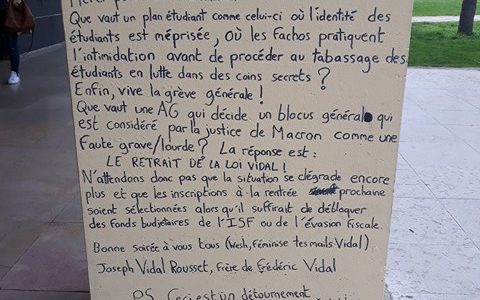 Que vaut un plan étudiant comme celui-ci où l'identité des
étudiants est méprisée, où les fachos pratiquent
l'intimidation avant de procéder au tabassage des
étudiants en lutte dans des coins secrets ?
Enfin, vive la grève générale !
Que vaut une AG qui décide un blocus général qui
est considéré par la justice de Macron comme une
Faute grave/lourde ? La réponse est :
LE RETRAIT DE LA LOI VIDAL !
N'attendons donc pas que la situation se dégrade encore
plus et que les inscriptions à la rentrée prochaine
soient sélectionnées alors qu'il suffirait de débloquer
des fonds budjetaires de l'ISF ou de l'évasion fiscale.
Bonne soirée à vous tous (wesh, féminise tes mails Vidal)
Joseph Vidal Rousset, frère de Frédéric Vidal
PS Ceci est un détournement